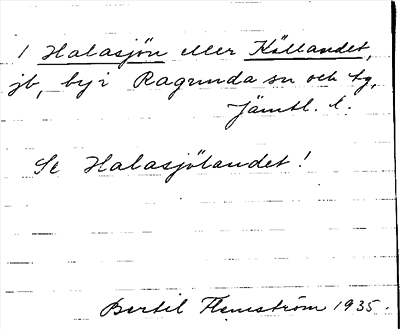 1 Halasjön eller Källandet,
jb, by i Ragunda sn och tg,
Jämtl. l.
Se Halasjölandet!
Bertil Flemström 1935.